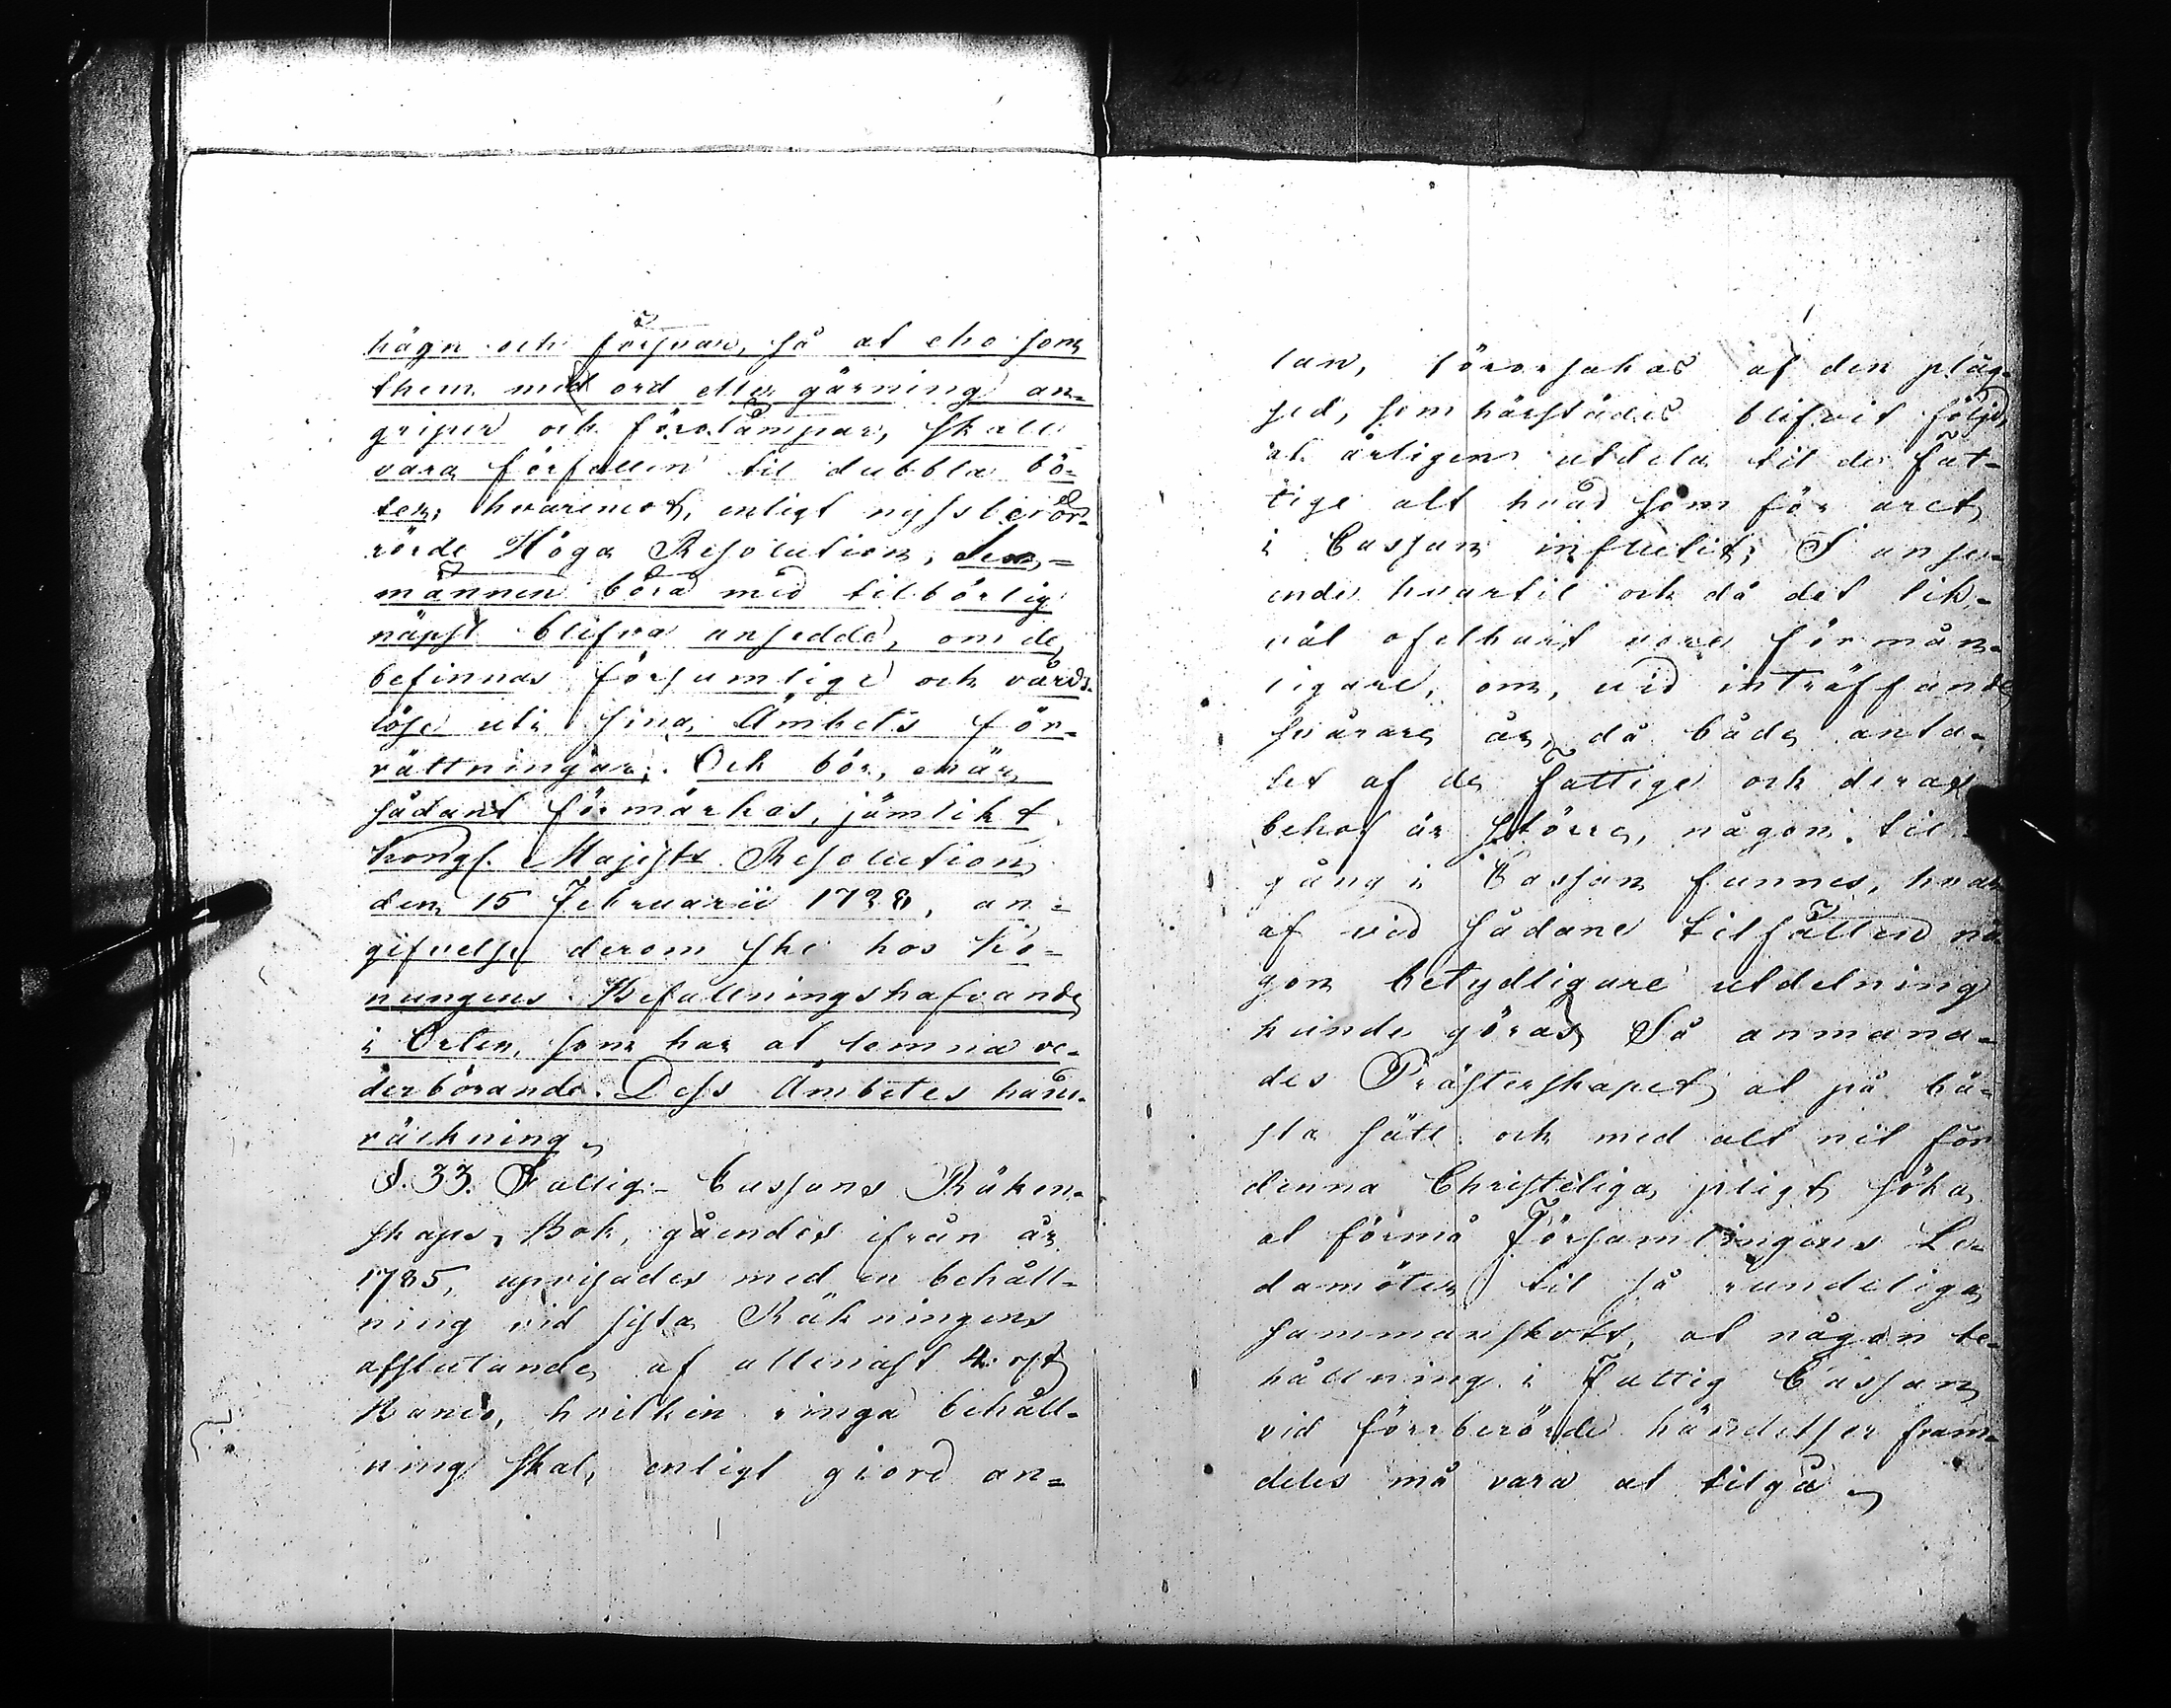 hägn och försvar, så at eho som
them med ord eller gärning an-
griper och förolämpar, skall
vara förfallen til dubbla bö-
ter; hvaremot, enligt nyssberör-
rörde Höga Resolution, Sex-
männen böra med tilbörlig
näpst blifva ansedde, om de
befinnas försumlige och vårds-
löse uti sina Ämbets för-
rättningar; Och bör, enär
sådant förmärkes, jämlikt
Kongl. Majsts Resolution
den 15 Februarii 1738, an-
gifvelse derom ske hos Ko-
nungens Befallningshafvande
i Orten, som har at lemna ve-
derbörande Dess Ämbetes hand-
räckning
§. 33. Fattig-Cassans Räken-
skaps Bok, gåendes ifrån år
1785, upvisades med en behåll-
ning vid sista Räkningens
afslutande af allenast 4:
Banco, hvilken ringa behåll-
ning skal, enligt giord an-
lan, förorsakas af den pläg-
sed, som härstädes blifvit följd,
at årligen utdela til de fat-
tige alt hvad som för året
i Cassan influtit; I anse-
ende hvartil och då det lik-
väl ofelbart vore förmån-
ligare, om, vid inträffande
svårare år, då både anta-
let af de fattige och deras
behof är större, någon til-
gång i Cassan funnes, hvar
af vid sådane tilfällen nå
gon betydligare utdelning
kunde göras; Så anmana-
des Prästerskapet at på bä-
sta sätt och med alt nit för
denna Christeliga pligt söka
at förmå Församlingens Le-
damöter til så rundeliga
sammanskott, at någon be-
hållning i Fattig Cassan
vid förrberörde händelser fram-
deles må vara at tilgå